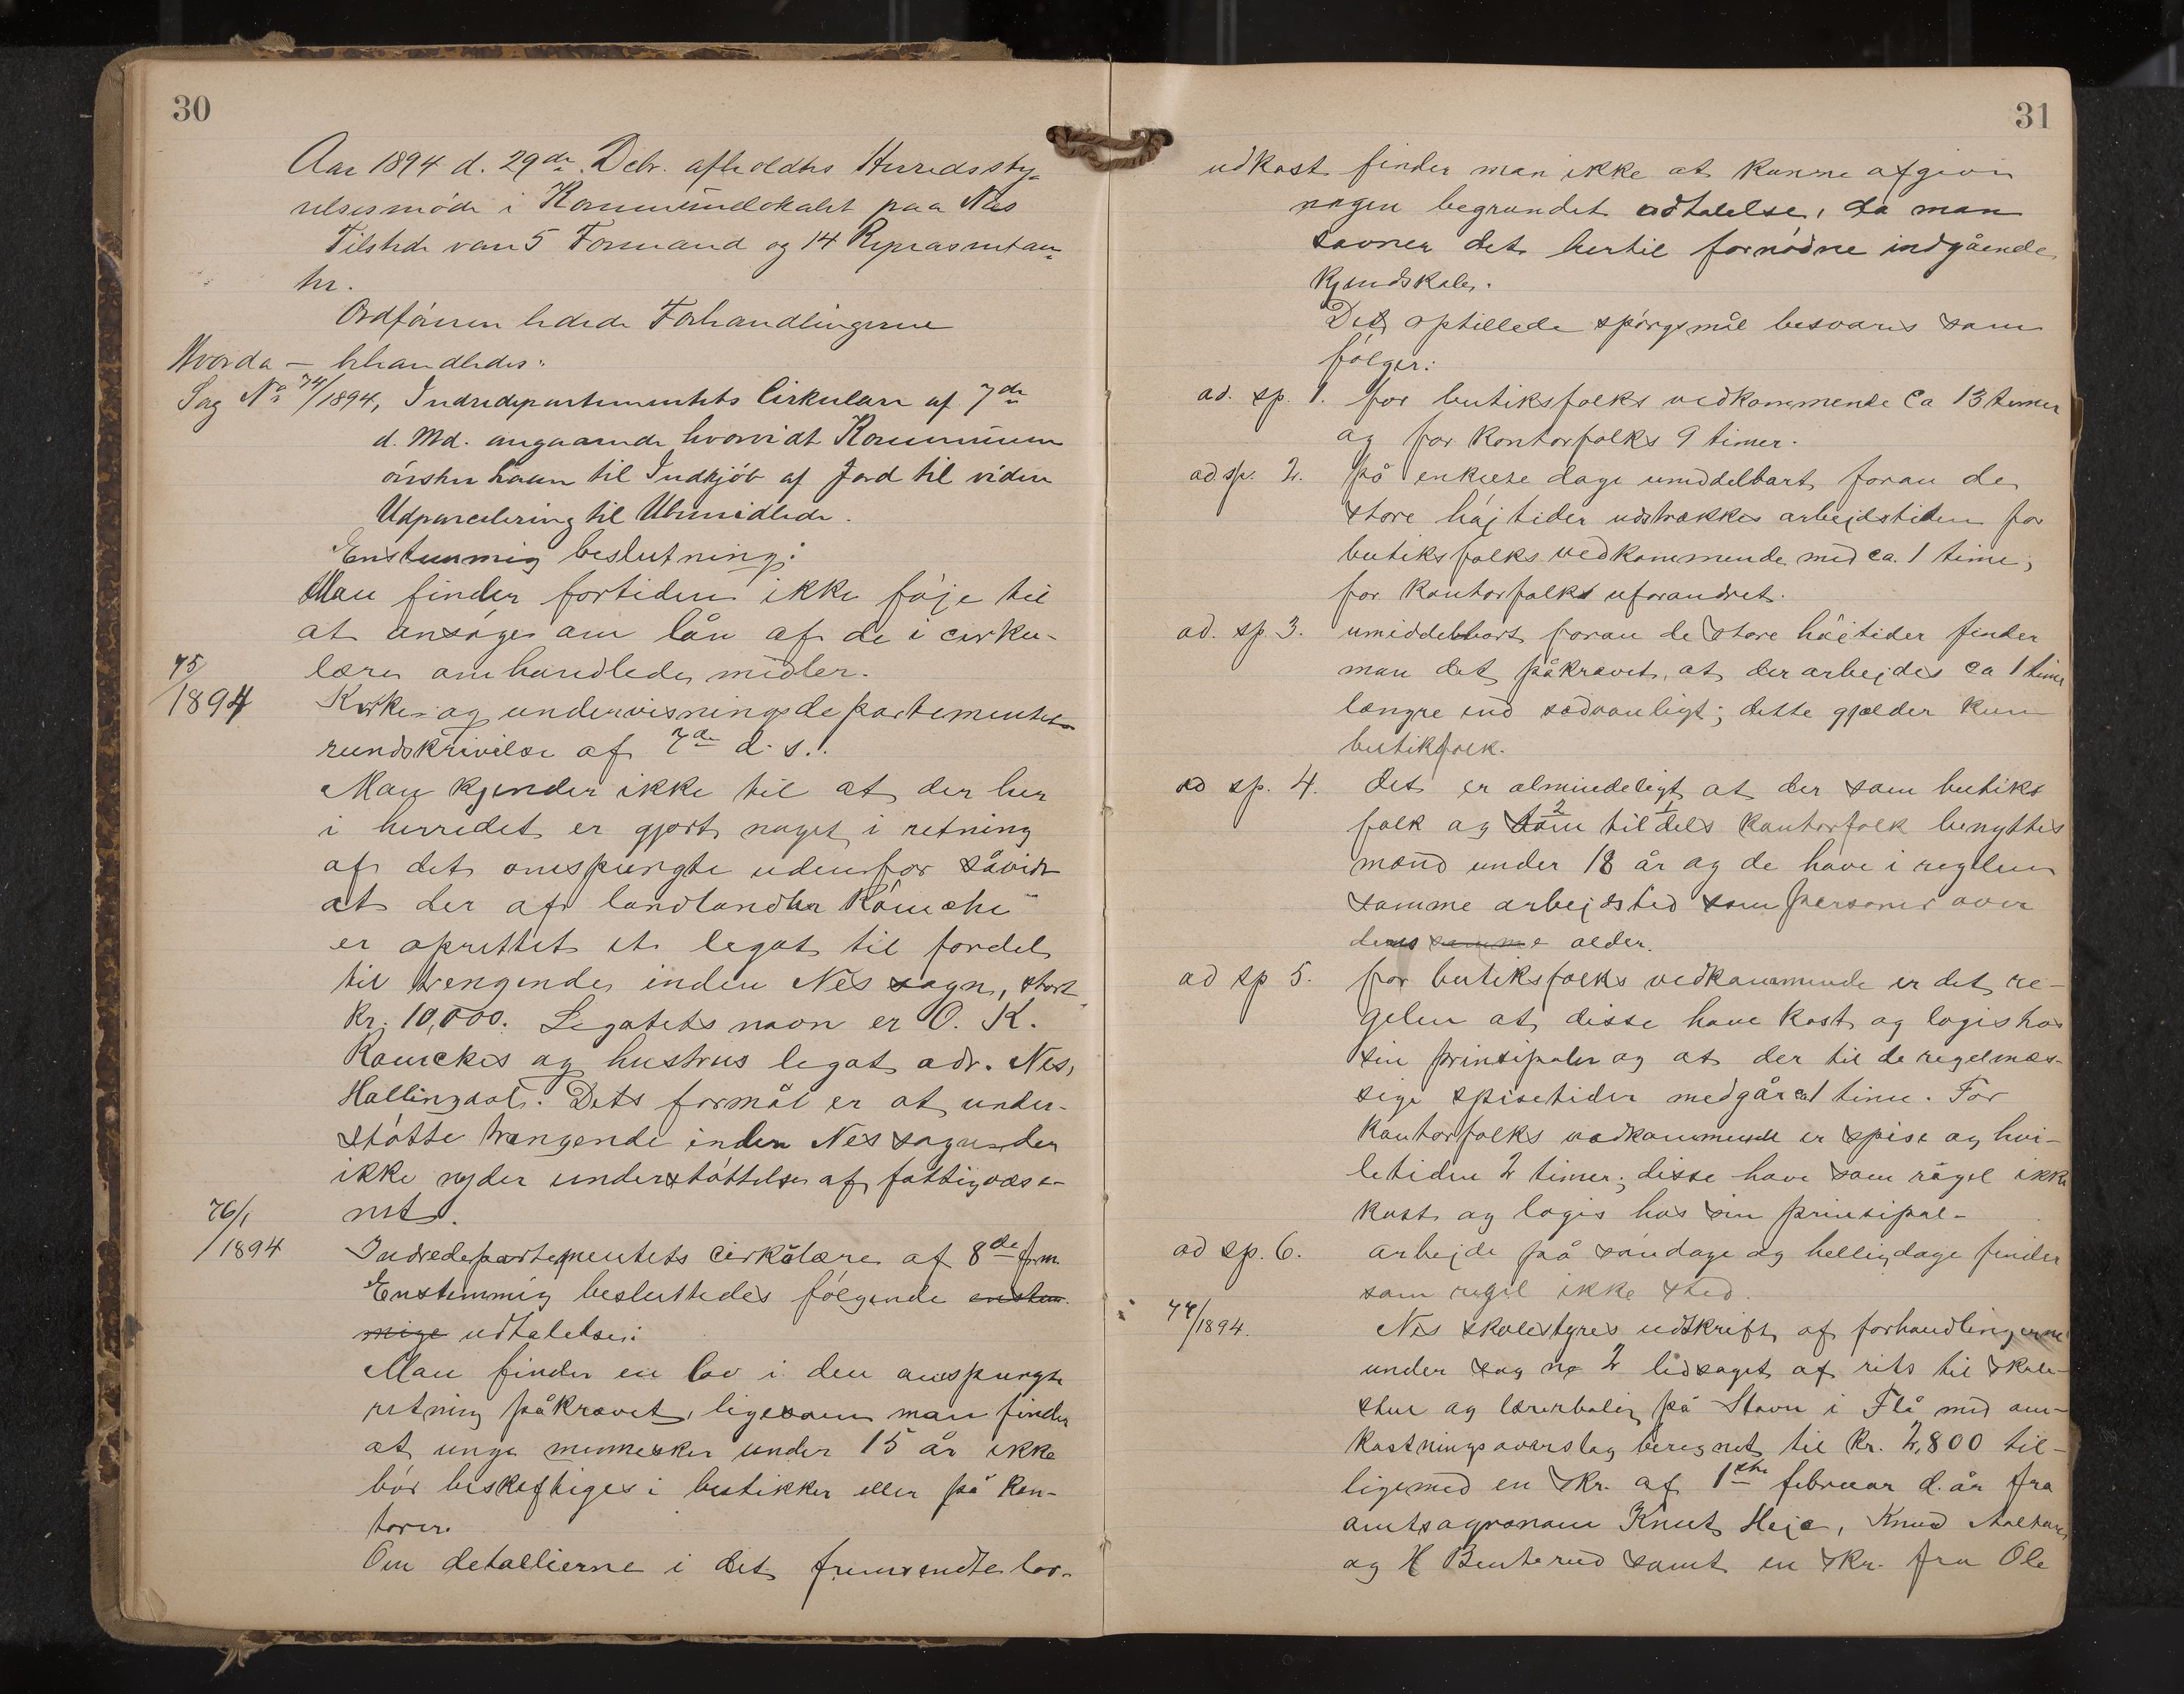 30
Aar 1894 d. 29de Debr. afholdtes Herredssty-
relsesmöde i Kommunelokalet paa Næs
Tilstede vare 5 Formænd og 14 Repræsentan-
ter.
Ordföreren ledede Forhandlingerne
Hvorda – behandledes:
Sag No 74/1894, Indredepartementets Cirkulære af 7de
d. Md. angaaende hvorvidt Kommunen
önsker Laan til Indkjöb af Jord til videre
Udparcelering til Ubemidlede.
Enstemmig beslutning:
Man finder fortiden ikke föje til
at ansöge om lån af de i cirku-
lære omhandlede midler.
75/1894
Kirke- og undervisningsdepartementets
rundskrivelse af 7de d. s.
Man kjender ikke til at der her
i herredet er gjort noget i retning
af det omspurgte udenfor såvidt
at der af landhandler Römcke
er oprettet et legat til fordel
til trengende inden Nes sogn, stort
Kr. 10,000. Legatets navn er O. K.
Römckes og hustrus legat adr. Nes,
Hallingdal. Dets formål er at under-
stötte trængende inden Nes sogn der
ikke nyder understöttelse af fattigvæse-
net.
76/1894
Indredepartementets cirkulære af 8de frm.
Enstemmig besluttedes fölgende enstem-
mige udtalelse:
Man finder en lov i den omspurgte
retning påkrævet, ligesom man finder
at unge mennesker under 15 år ikke
bör beskjeftiges i butikker eller på kon-
torer.
Om detaillerne i det fremsendte lov-
31
udkast finder man ikke at kunne afgive
nogen begrundet udtalelse, da man
savner det hertil fornödne indgående
kjendskab.
De opstillede spörgsmål besvares som
fölger:
ad. sp. 1. for butiksfolks vedkommende ca 13 timer
og for kontorfolks 9 timer.
ad. sp. 2. på enkelte dage umiddelbart foran de
store höjtider udstrækkes arbejdstiden for
butiksfolks vedkommende med ca. 1 time,
for kontorfolks uforandret.
ad. sp. 3. umiddelbart foran de store höjtider finder
man det påkrævet, at der arbejdes ca 1 time
længre end sædvanligt; dette gjælder kun
butikfolk.
ad sp. 4. det er almindeligt at der som butiks
folk og som til dels kontorfolk benyttes
mænd under 18 år og de have i reglen
samme arbejdstid som personer over
denne alder.
ad sp 5. for butiksfolks vedkommende er det re-
gelen at disse have kost og logis hos
sin prinsipaler og at der til de regelmæs-
sige spisetider medgår ca 1 time. For
kontorfolks vedkommende er spise og hvi-
letiden 2 timer; disse have som regel ikke
kost og logis hos sin prinsipal-
ad sp. 6. arbejde på söndage og helligdage finder
som regel ikke sted.
77/1894. Nes skolestyres udskrift af forhandlingerne
under sag no 2 ledsaget af rits til skole-
stue og lærerbolig på Stavn i Flå med om-
kostningsoverslag beregnet til Kr. 2,800 til-
ligemed en skr. af 1ste februar d. år fra
amtsagronom Knut Heje, Knud
og H Benterud samt en skr. fra Ole